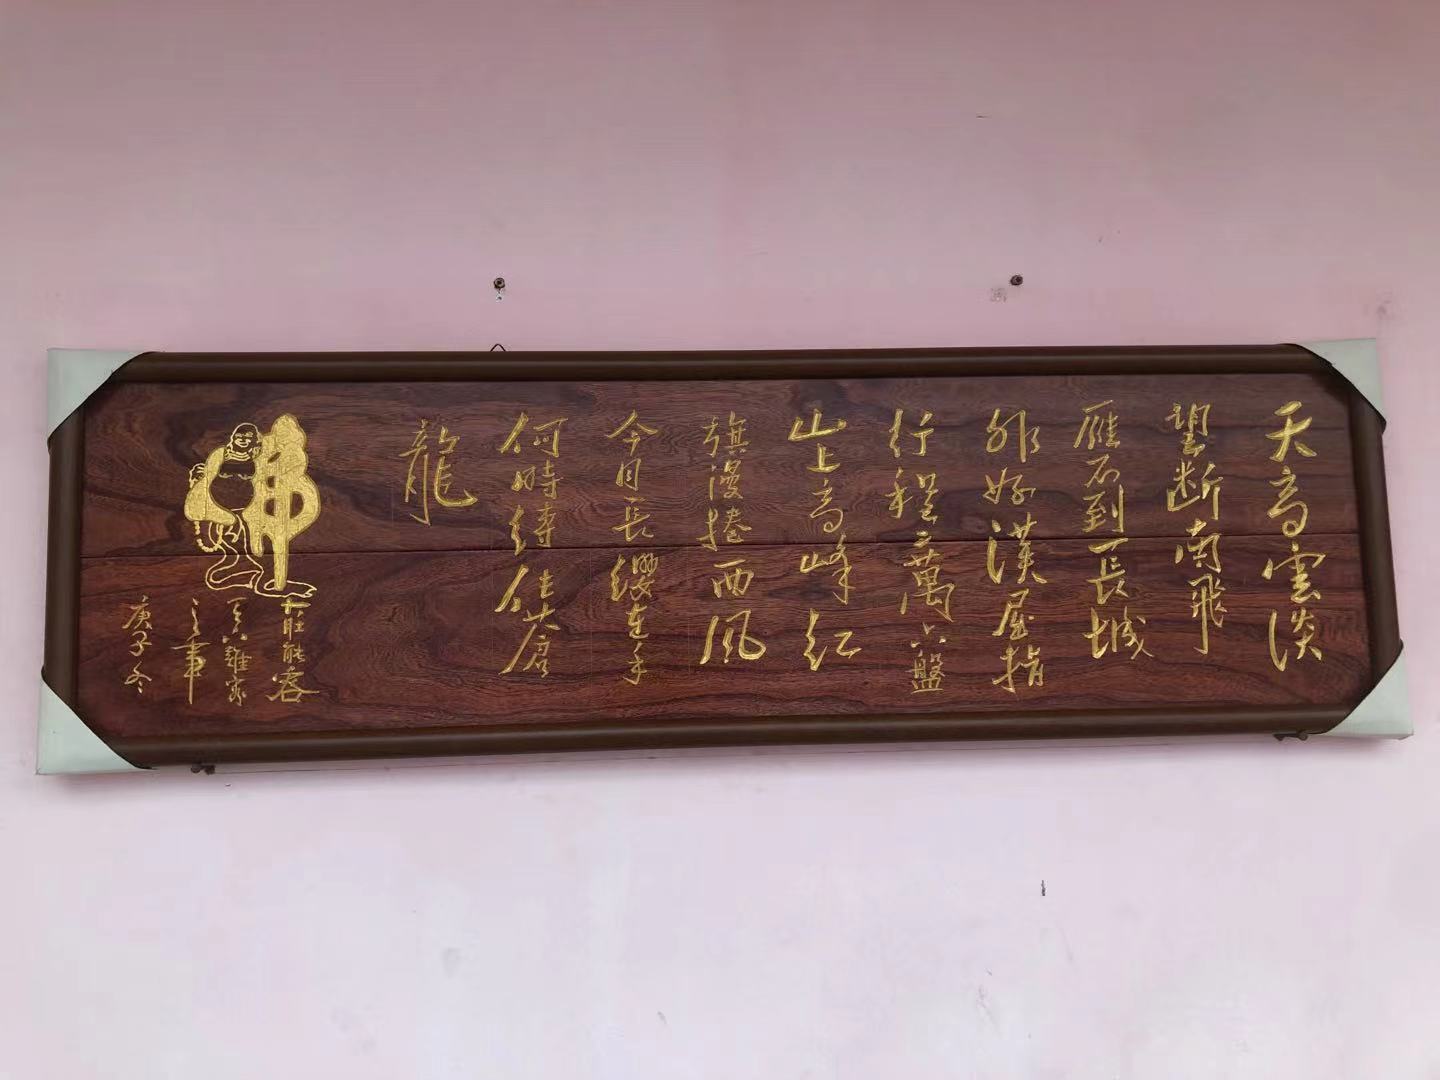 天高雲淡
望断南飛
雁不到長城
非好漢屈指
行程二萬六盤
山上高峰红
旗漫捲西風
今日長纓在手
何時縛住蒼
龍
佛
大肚能容
天下難容
之事
庚子冬